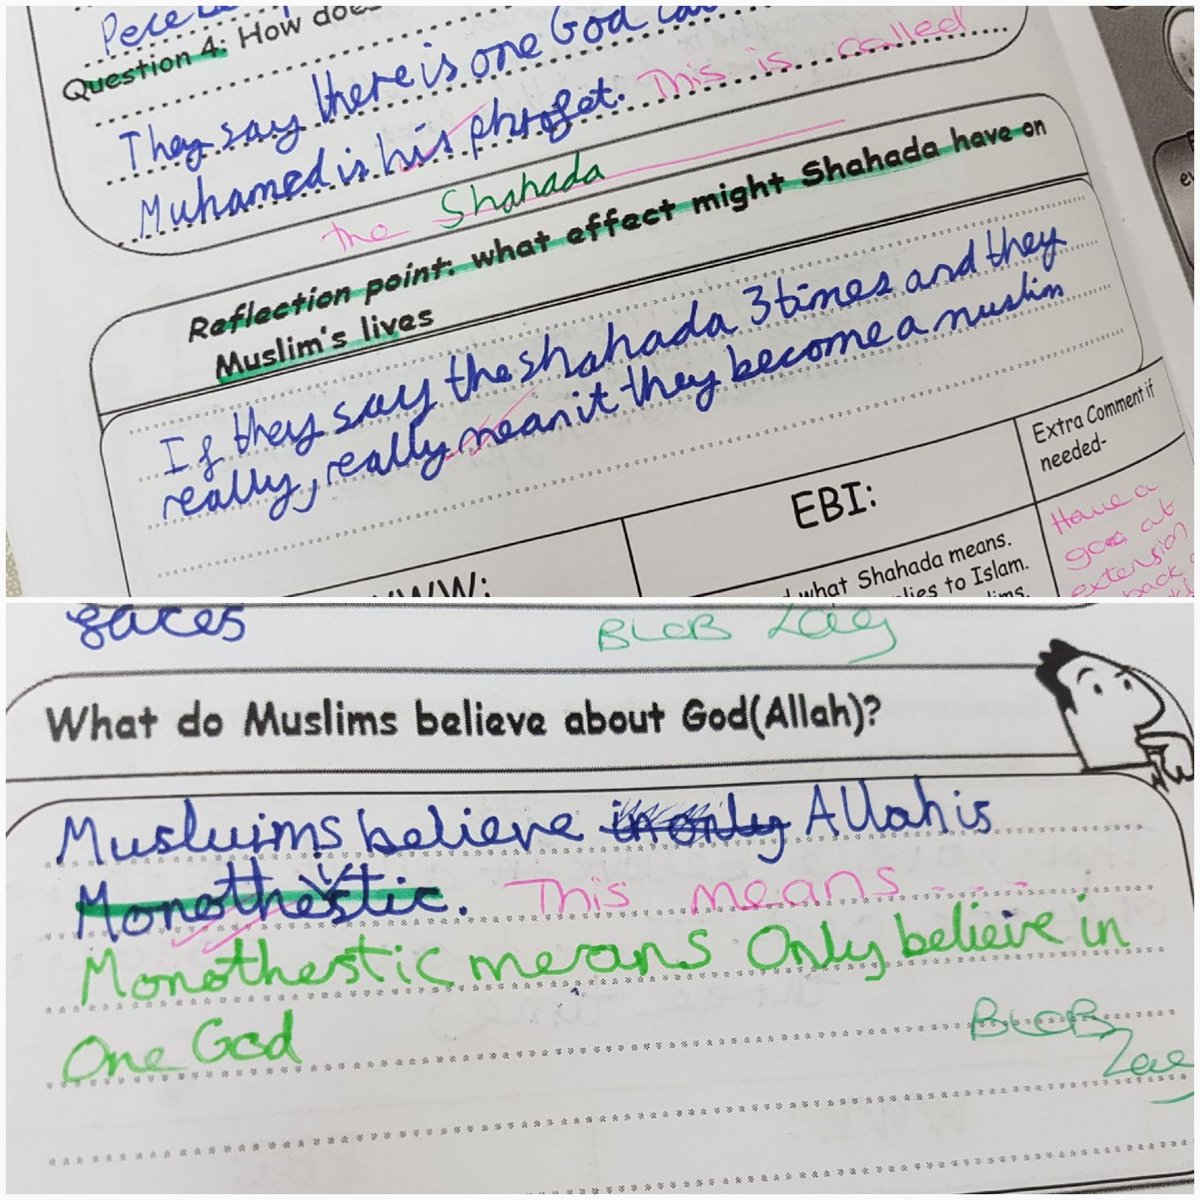 Question 4: How does
They say there is one God
Muhamed is his phrofet. This is called
the Shahada
Reflection point: what effect might Shahada have on
Muslim's lives
If they say the shahada 3 times and they
really, really mean it they become a muslim
WWW:
EBI:
Extra Comment if
needed-
what Shahada means.
lies to Islam.
Have a
go at
extension
back
faces
BLOB
What do Muslims believe about God(Allah)?
Musluims believe in only Allah is
Monotheistic. This means - - - -
Monothestic means Only believe in
One God
BLOB